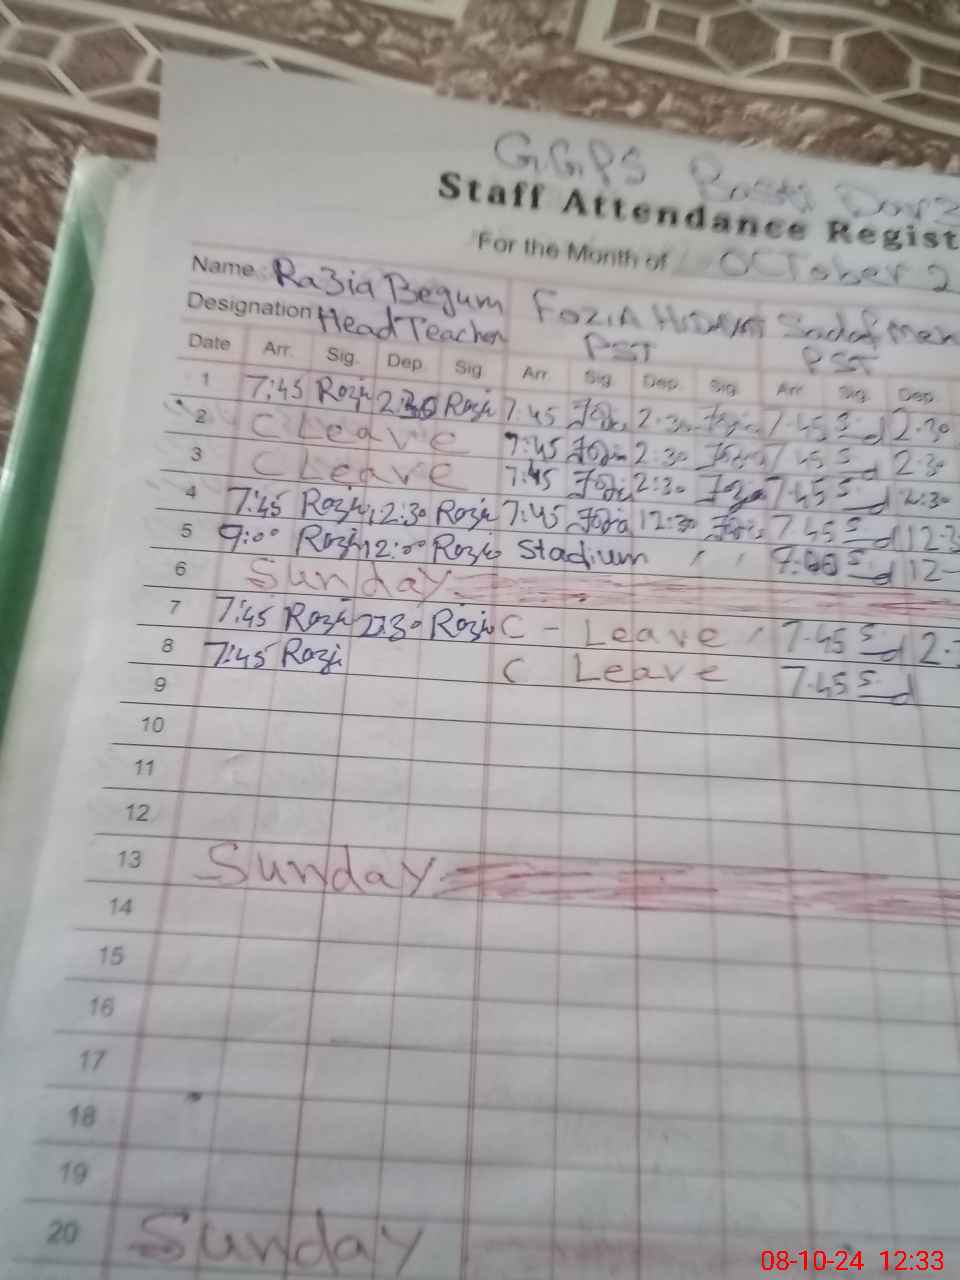 G.G.P.S Basti
Staff Attendance Regist
For the Month of October 2
Name: Razia Begum Fozia Sadaf
Designation Head Teacher PST PST
Date Arr. Sig. Dep. Sig Arr. Sig Dep. Sig Arr Sig Dep.
1 7:45 Razi 2:30 Razi 7:45 2:30 7:45 2:30
2 C Leave 7:45 2:30 7:45 2:30
3 C Leave 7:45 2:30 7:45 2:30
4 7:45 Razi 12:30 Razi 7:45 12:30 7:45 12:3
5 9:00 Razi 12:00 Razi Stadium 12
6 Sunday
7 7:45 Razi 2:30 Razi C - Leave 7:45 2:
8 7:45 Razi C Leave 7:45
9
10
11
12
13 Sunday
14
15
16
17
18
19
20 Sunday
08-10-24 12:33